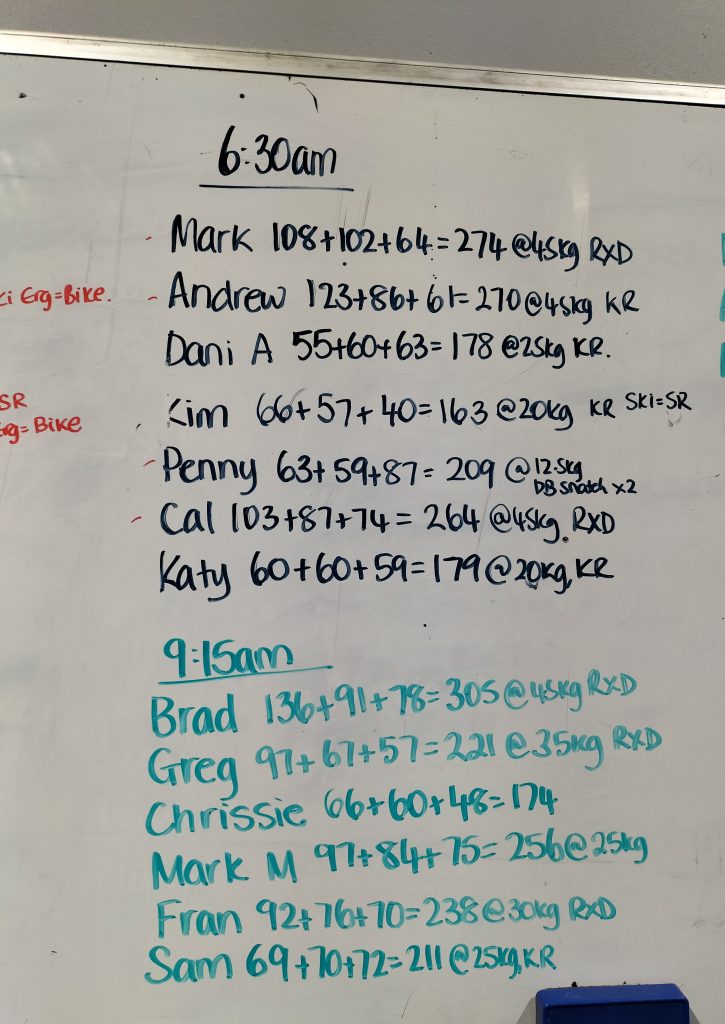 6:30am
- Mark 108+102+64=274@45kg RXD
Erg=Bike. - Andrew 123+86+61=270@45kg KR
Dani A 55+60+63=178@25kg KR.
SR
Kim 66+57+40=163@20kg KR Ski=SR
= Bike
- Penny 63+59+87=209@12.5kg
DB snatch x2
- Cal 103+87+74=264@45kg RXD
Katy 60+60+59=179@20kg, KR
9:15am
Brad 136+91+78=305@45kg RXD
Greg 97+67+57=221@35kg RXD
Chrissie 66+60+48=174
Mark M 97+84+75=256@25kg
Fran 92+76+70=238@30kg RXD
Sam 69+70+72=211@25kg, KR